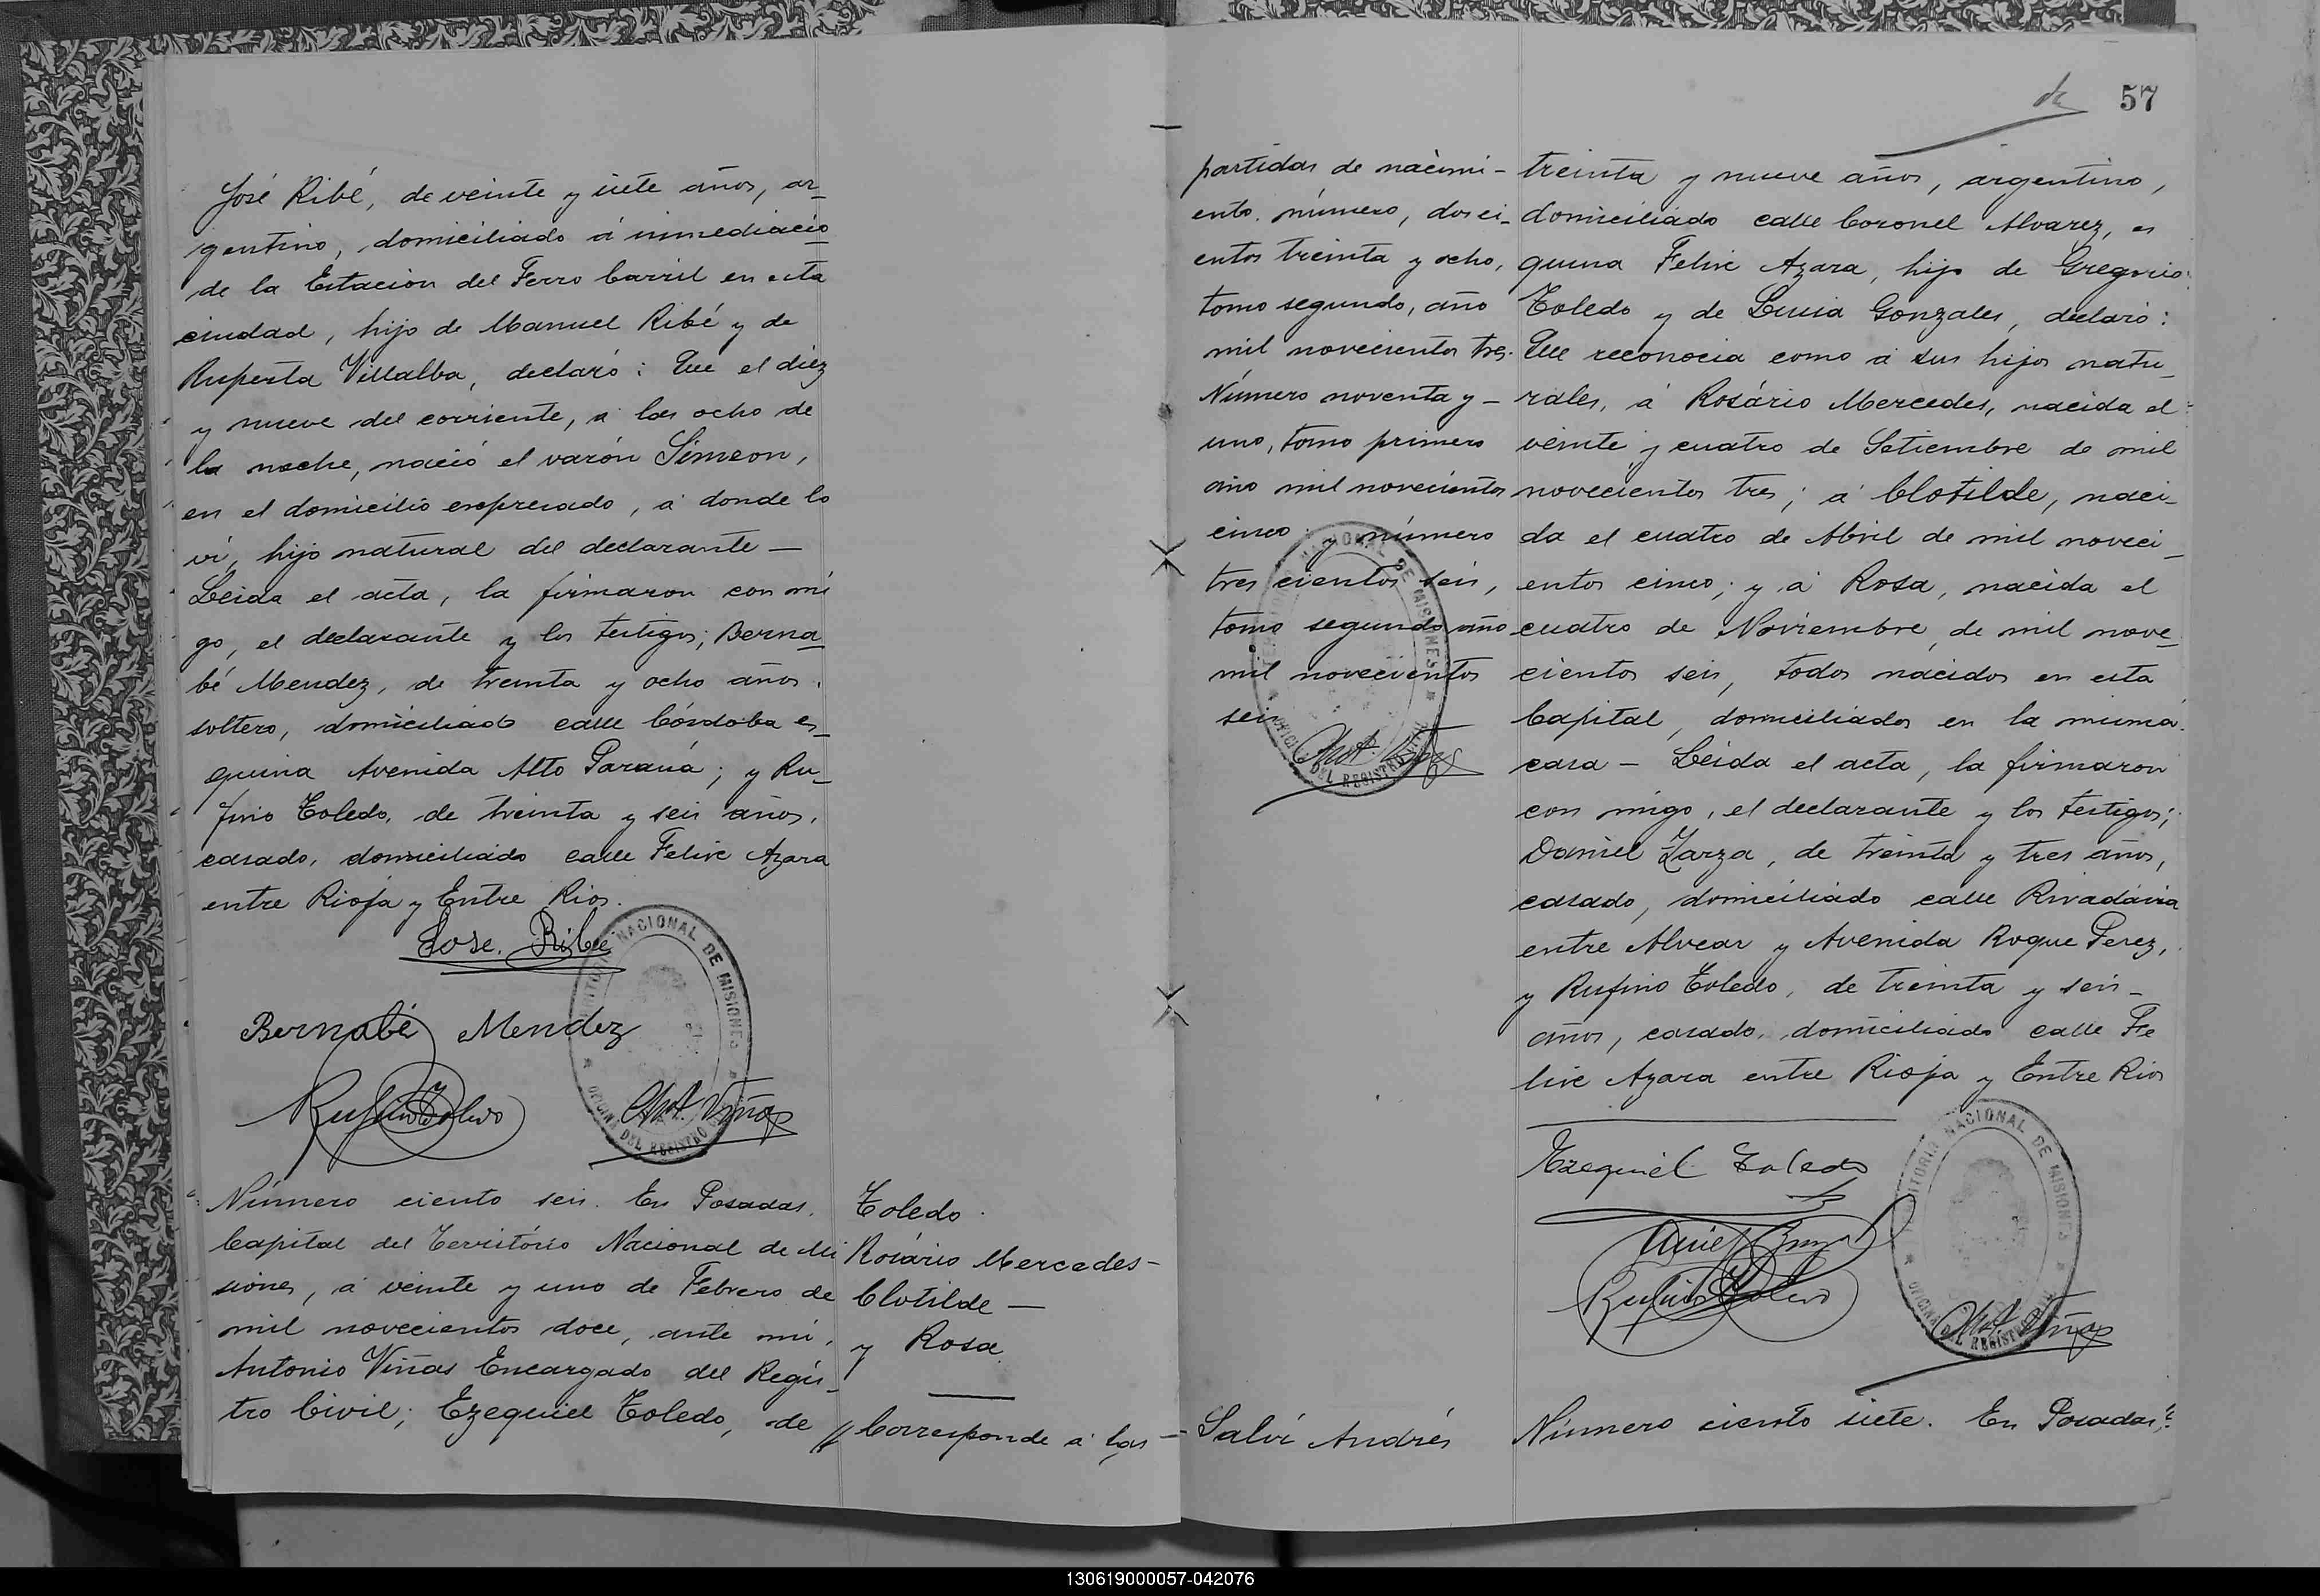 José Ribé, de veinte y siete años, ar_
gentino, domiciliado á inmediacio
de la Estación del Ferro Carril en esta
ciudad, hijo de Manuel Ribé y de
Ruperta Villalba, declaró: Que el diez
y nueve del corriente, á las ocho de
la noche, nació el varón Simeon,
en el domicilio expresado, á donde lo
ví, hijo natural del declarante —
Leida el acta, la firmaron con mi
go, el declarante y los testigos; Berna_
bé Mendez, de treinta y ocho años.
soltero, domiciliado calle Córdoba es_
quina Avenida Alto Paraná; y Ru_
fino Toledo, de treinta y seis años,
casado, domiciliado calle Felix Azara
entre Rioja y Entre Rios.
Jose. Ribe
Bernabé Mendez
Rufino Toledo
Ant. Viñas
TERRITORIO NACIONAL DE MISIONES
OFICINA DEL REGISTRO CIVIL
Número ciento seis. En Posadas,
Capital del Território Nacional de Mi
siones, á veinte y uno de Febrero de
mil novecientos doce, ante mi,
Antonio Viñas Encargado del Regis_
tro Civil; Ezequiel Toledo, de
Toledo.
Rosário Mercedes—
Clotilde —
y Rosa
Corresponde á las —
partidas de nacimi-
ento. número, dosci_
entos treinta y ocho,
tomo segundo, año
mil novecientos tres.
Número noventa y —
uno, tomo primero
año mil novecientos
cinco y número
tres cientos seis,
tomo segundo año
mil novecientos
seis
Ant. Viñas
TERRITORIO NACIONAL DE MISIONES
OFICINA DEL REGISTRO CIVIL
Salvi Andrés
57
treinta y nueve años, argentino,
domiciliado calle Coronel Alvarez, es
quina Felix Azara, hijo de Gregorio
Toledo y de Luisa Gonzales, declaró:
Que reconocia como á sus hijos natu_
rales, á Rosário Mercedes, nacida el
veinte y cuatro de Setiembre de mil
novecientos tres; á Clotilde, naci_
da el cuatro de Abril de mil noveci_
entos cinco; y á Rosa, nacida el
cuatro de Noviembre de mil nove_
cientos seis, todos nácidos en esta
Capital, domiciliados en la misma
casa — Leida el acta, la firmaron
con migo, el declarante y los testigos;
Daniel Zarza, de treinta y tres años,
casado, domiciliado calle Rivadávia
entre Alvear y Avenida Roque Perez,
y Rufino Toledo, de treinta y seis —
años, casado, domiciliado calle Fe
lix Azara entre Rioja y Entre Rios
Ezequiel Toledo
Rufino Toledo
Ant. Viñas
TERRITORIO NACIONAL DE MISIONES
OFICINA DEL REGISTRO CIVIL
Número ciento siete. En Posadas,
130619000057-042076